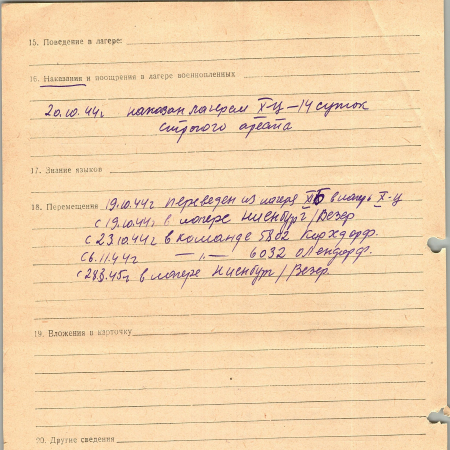 15. Поведение в лагере:
16. Наказания и поощрения в лагере военнопленных
20.10.44г наказан лагерем X-Ц – 14 суток
строгого ареста
17. Знание языков
18. Перемещения 19.10.44г переведен из лагеря XБ в лагерь X-Ц
с 19.10.44г. в лагере Ниенбург/Везер
с 23.10.44г в команде 5802 Кирхдорф.
с 6.11.44г —„— 6032 Лендорф.
с 28.3.45г в лагере Ниенбург/Везер.
19. Вложения в карточку
20. Другие сведения